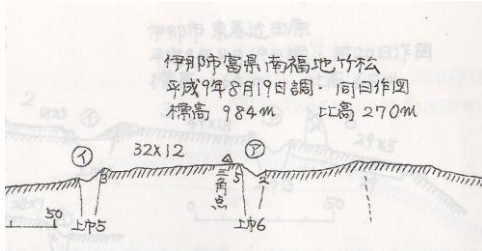 伊那市富県南福地竹松
平成9年8月19日調・同日作図
標高 984m 比高 270m
イ 32×12 ア
3 三角点 5 2
50 上巾5 上巾6